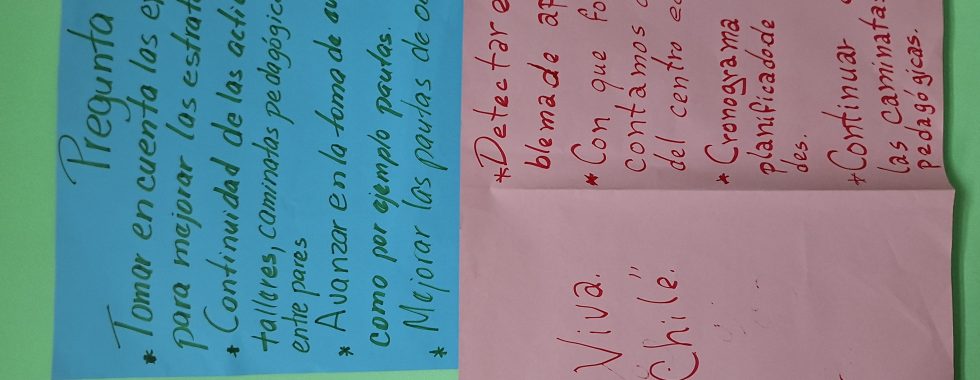 Pregunta
* Tomar en cuenta las
para mejorar las
* Continuidad de las
talleres, caminatas
entre pares
* Avanzar en la toma de
como por ejemplo pautas.
* Mejorar las pautas de
* Detectar
blemade
* Con que
contamos
del centro
* Cronograma
planificadode
des.
* Continuar
las caminatas
pedagógicas.
Viva.
Chile"